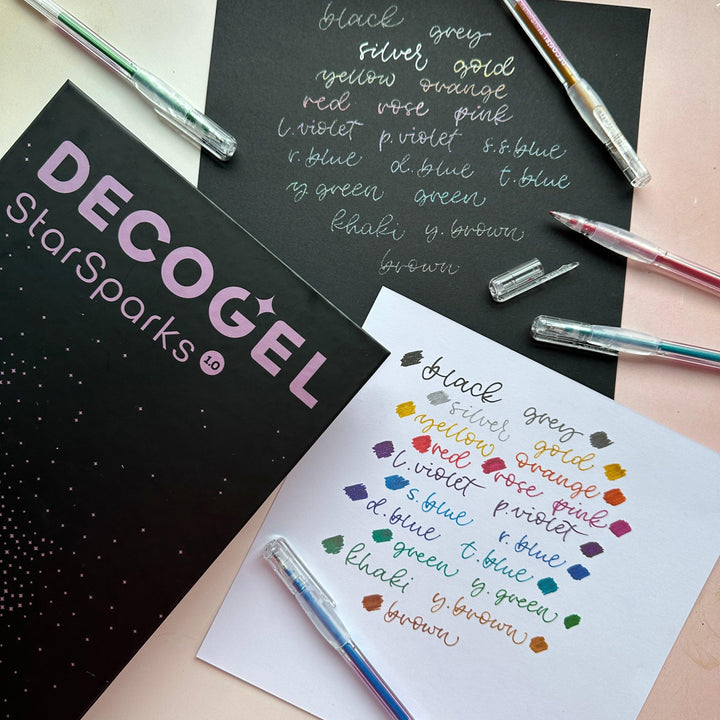 DECOGEL
StarSparks 1.0
black grey
silver gold
yellow orange
red rose pink
l.violet p.violet s.s.blue
r.blue d.blue t.blue
y green green
khaki y.brown
brown
black grey
silver gold
yellow orange
red rose pink
l.violet p.violet
s.blue r.blue
d.blue t.blue
green y.green
khaki y.brown
brown